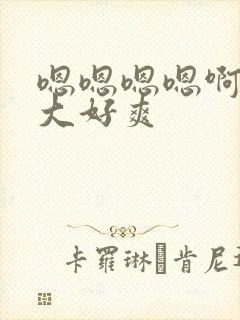 嗯嗯嗯嗯啊
大好爽
卡羅琳肯尼